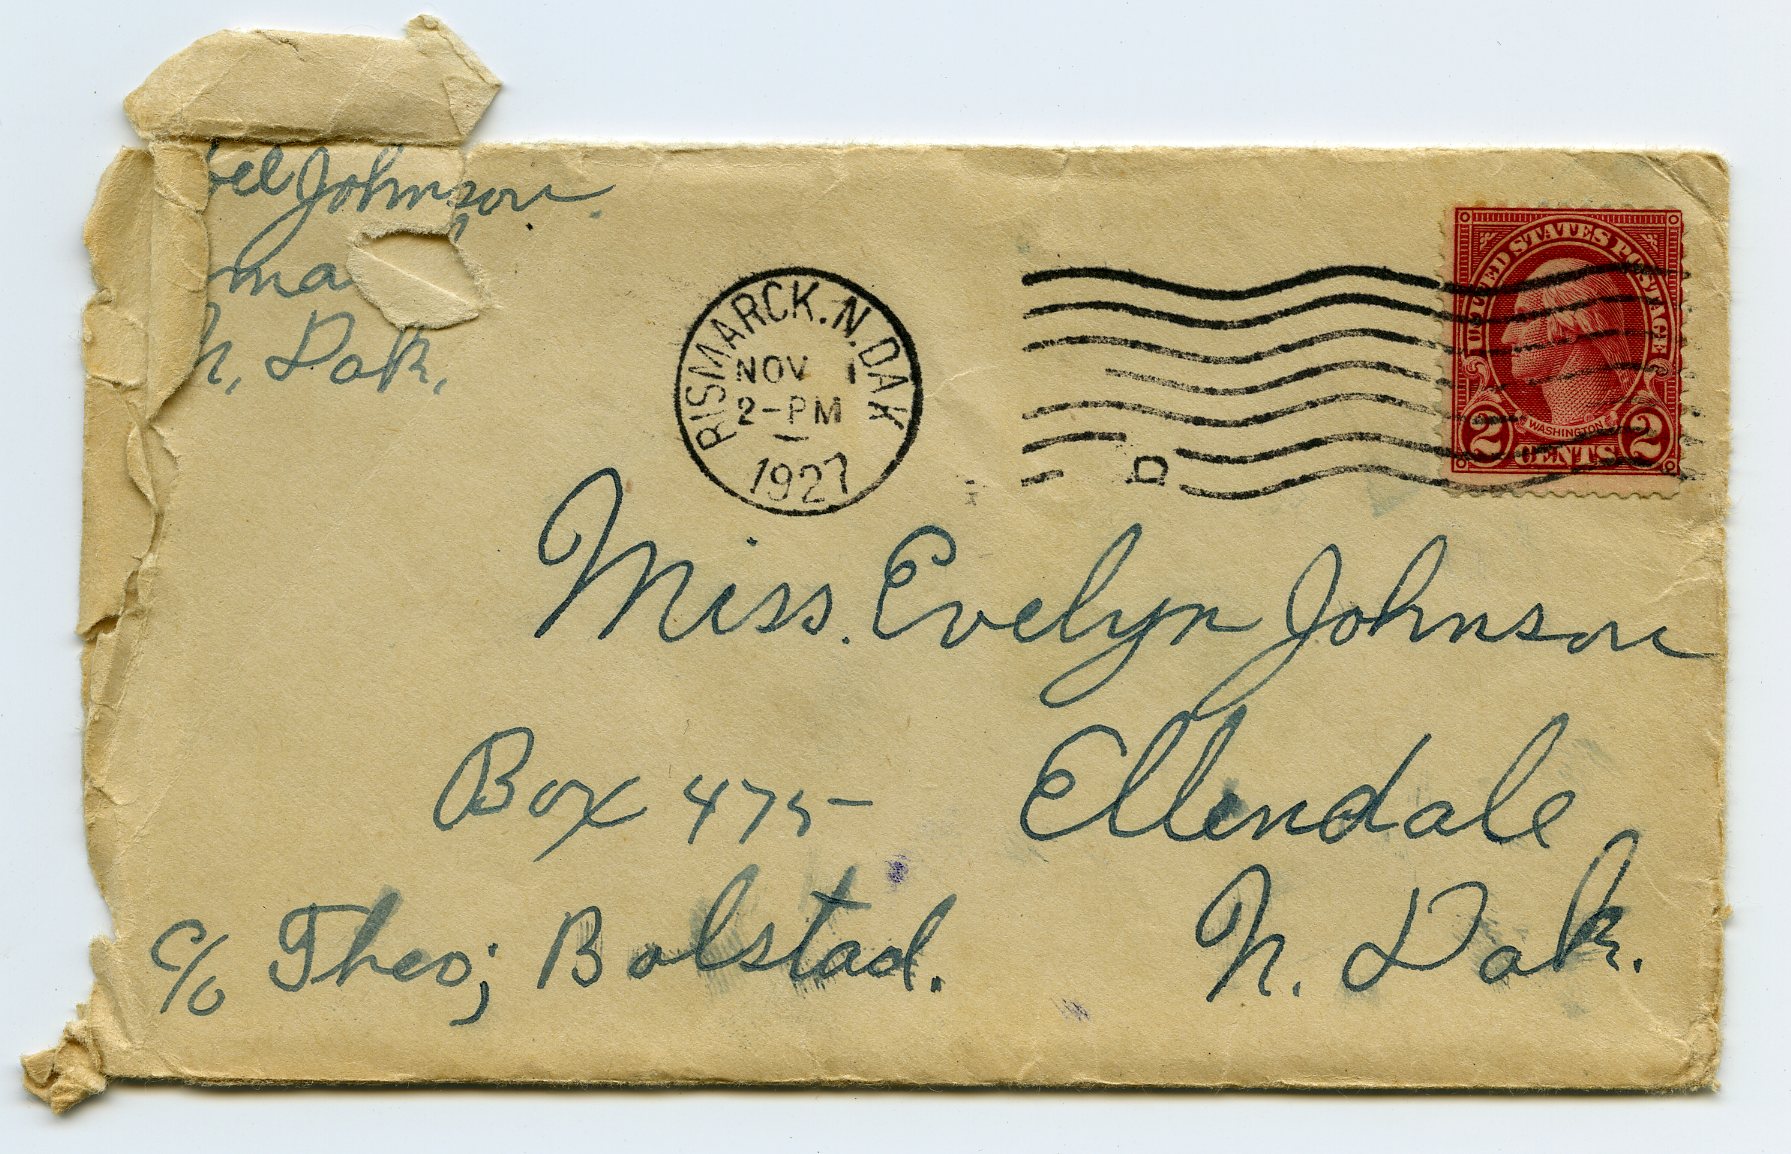 bel Johnson.
ma
N. Dak.
BISMARCK. N. DAK
NOV 1
2-PM
1927
D
UNITED STATES POSTAGE
WASHINGTON
2 CENTS 2
Miss. Evelyn Johnson
Box 475- Ellendale
c/o Theo; Bolstad. N. Dak.